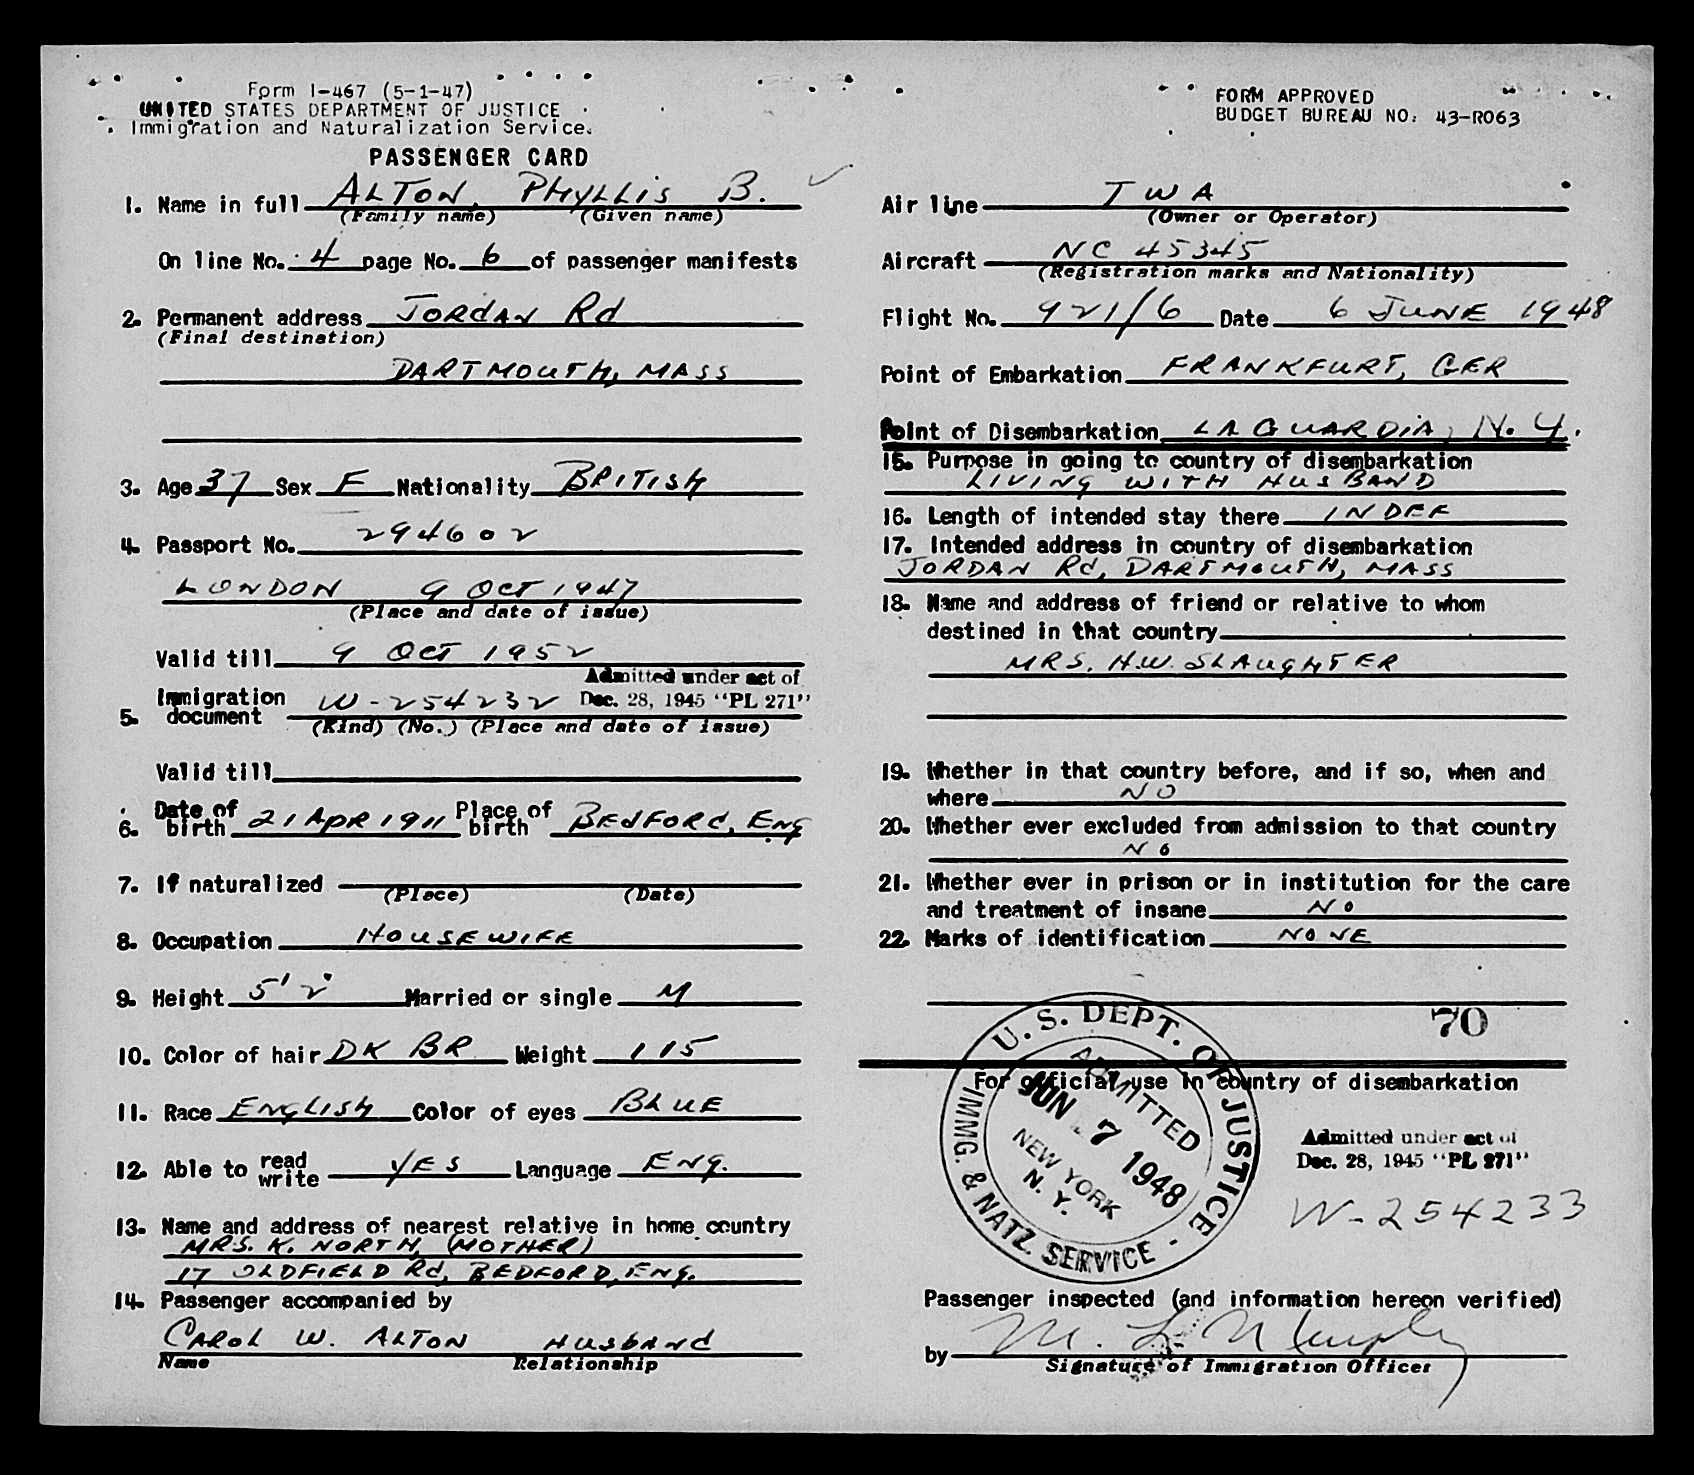 Form I-467 (5-1-47)
UNITED STATES DEPARTMENT OF JUSTICE
Immigration and Naturalization Service.
PASSENGER CARD
1. Name in full ALTON, PHYLLIS B.
(Family name) (Given name)
On line No. 4 page No. 6 of passenger manifests
2. Permanent address JORDAN Rd
(Final destination)
DARTMOUTH, MASS
3. Age 37 Sex F Nationality BRITISH
4. Passport No. 294602
LONDON 9 OCT 1947
(Place and date of issue)
Valid till 9 OCT 1952
Admitted under act of
Dec. 28, 1945 "PL 271"
5. Immigration document W-254232
(Kind) (No.) (Place and date of issue)
Valid till
6. Date of birth 21 APR 1911 Place of birth BEdFORd, ENg
7. If naturalized
(Place) (Date)
8. Occupation HOUSEWIFE
9. Height 5'2" Married or single M
10. Color of hair DK BR Weight 115
11. Race ENGLISH Color of eyes BLUE
12. Able to read write YES Language ENg.
13. Name and address of nearest relative in home country
MRS. K. NORTH, (MOTHER)
17 OLDFIELD Rd, BEDFORD, ENg.
14. Passenger accompanied by
CAROL W. ALTON HUSbANd
Name Relationship
FORM APPROVED
BUDGET BUREAU NO. 43-R063
Air line TWA
(Owner or Operator)
Aircraft NC 45345
(Registration marks and Nationality)
Flight No. 921/6 Date 6 JUNE 1948
Point of Embarkation FRANKFURT, GER
Point of Disembarkation LAGUARDIA, N.Y.
15. Purpose in going to country of disembarkation
LIVING WITH HUSBAND
16. Length of intended stay there INDEF
17. Intended address in country of disembarkation
JORDAN Rd, DARTMOUTH, MASS
18. Name and address of friend or relative to whom
destined in that country
MRS. H.W. SLAUGHTER
19. Whether in that country before, and if so, when and
where NO
20. Whether ever excluded from admission to that country
NO
21. Whether ever in prison or in institution for the care
and treatment of insane NO
22. Marks of identification NONE
70
For official use in country of disembarkation
U.S. DEPT. OF JUSTICE
IMMG. & NATZ. SERVICE
ADMITTED
JUN 7 1948
NEW YORK
N.Y.
Admitted under act of
Dec. 28, 1945 "PL 271"
W-254233
Passenger inspected (and information hereon verified)
by
Signature of Immigration Officer